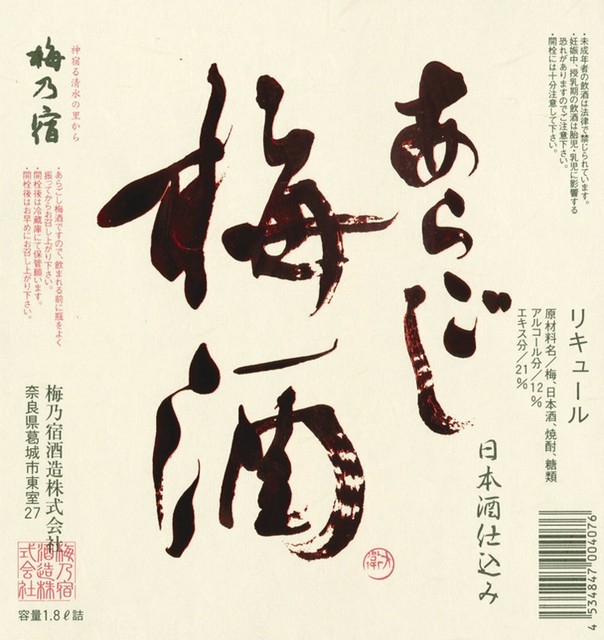 ・未成年者の飲酒は法律で禁じられています。
・妊娠中、授乳期の飲酒は胎児・乳児に影響する
恐れがありますのでご注意下さい。
・開栓には十分注意して下さい。
リキュール
原材料名／梅、日本酒、焼酎、糖類
アルコール分／12%
エキス分／21%
4534847004076
あらごし
梅酒
日本酒仕込み
神宿る清水の里から
梅乃宿
・あらごし梅酒ですので、飲まれる前に瓶をよく
振ってからお召し上がり下さい。
・開栓後は冷蔵庫にて保管願います。
・開栓後はお早めにお召し上がり下さい。
梅乃宿酒造株式会社
奈良県葛城市東室27
梅乃宿
酒造株
式会社
容量1.8ℓ詰